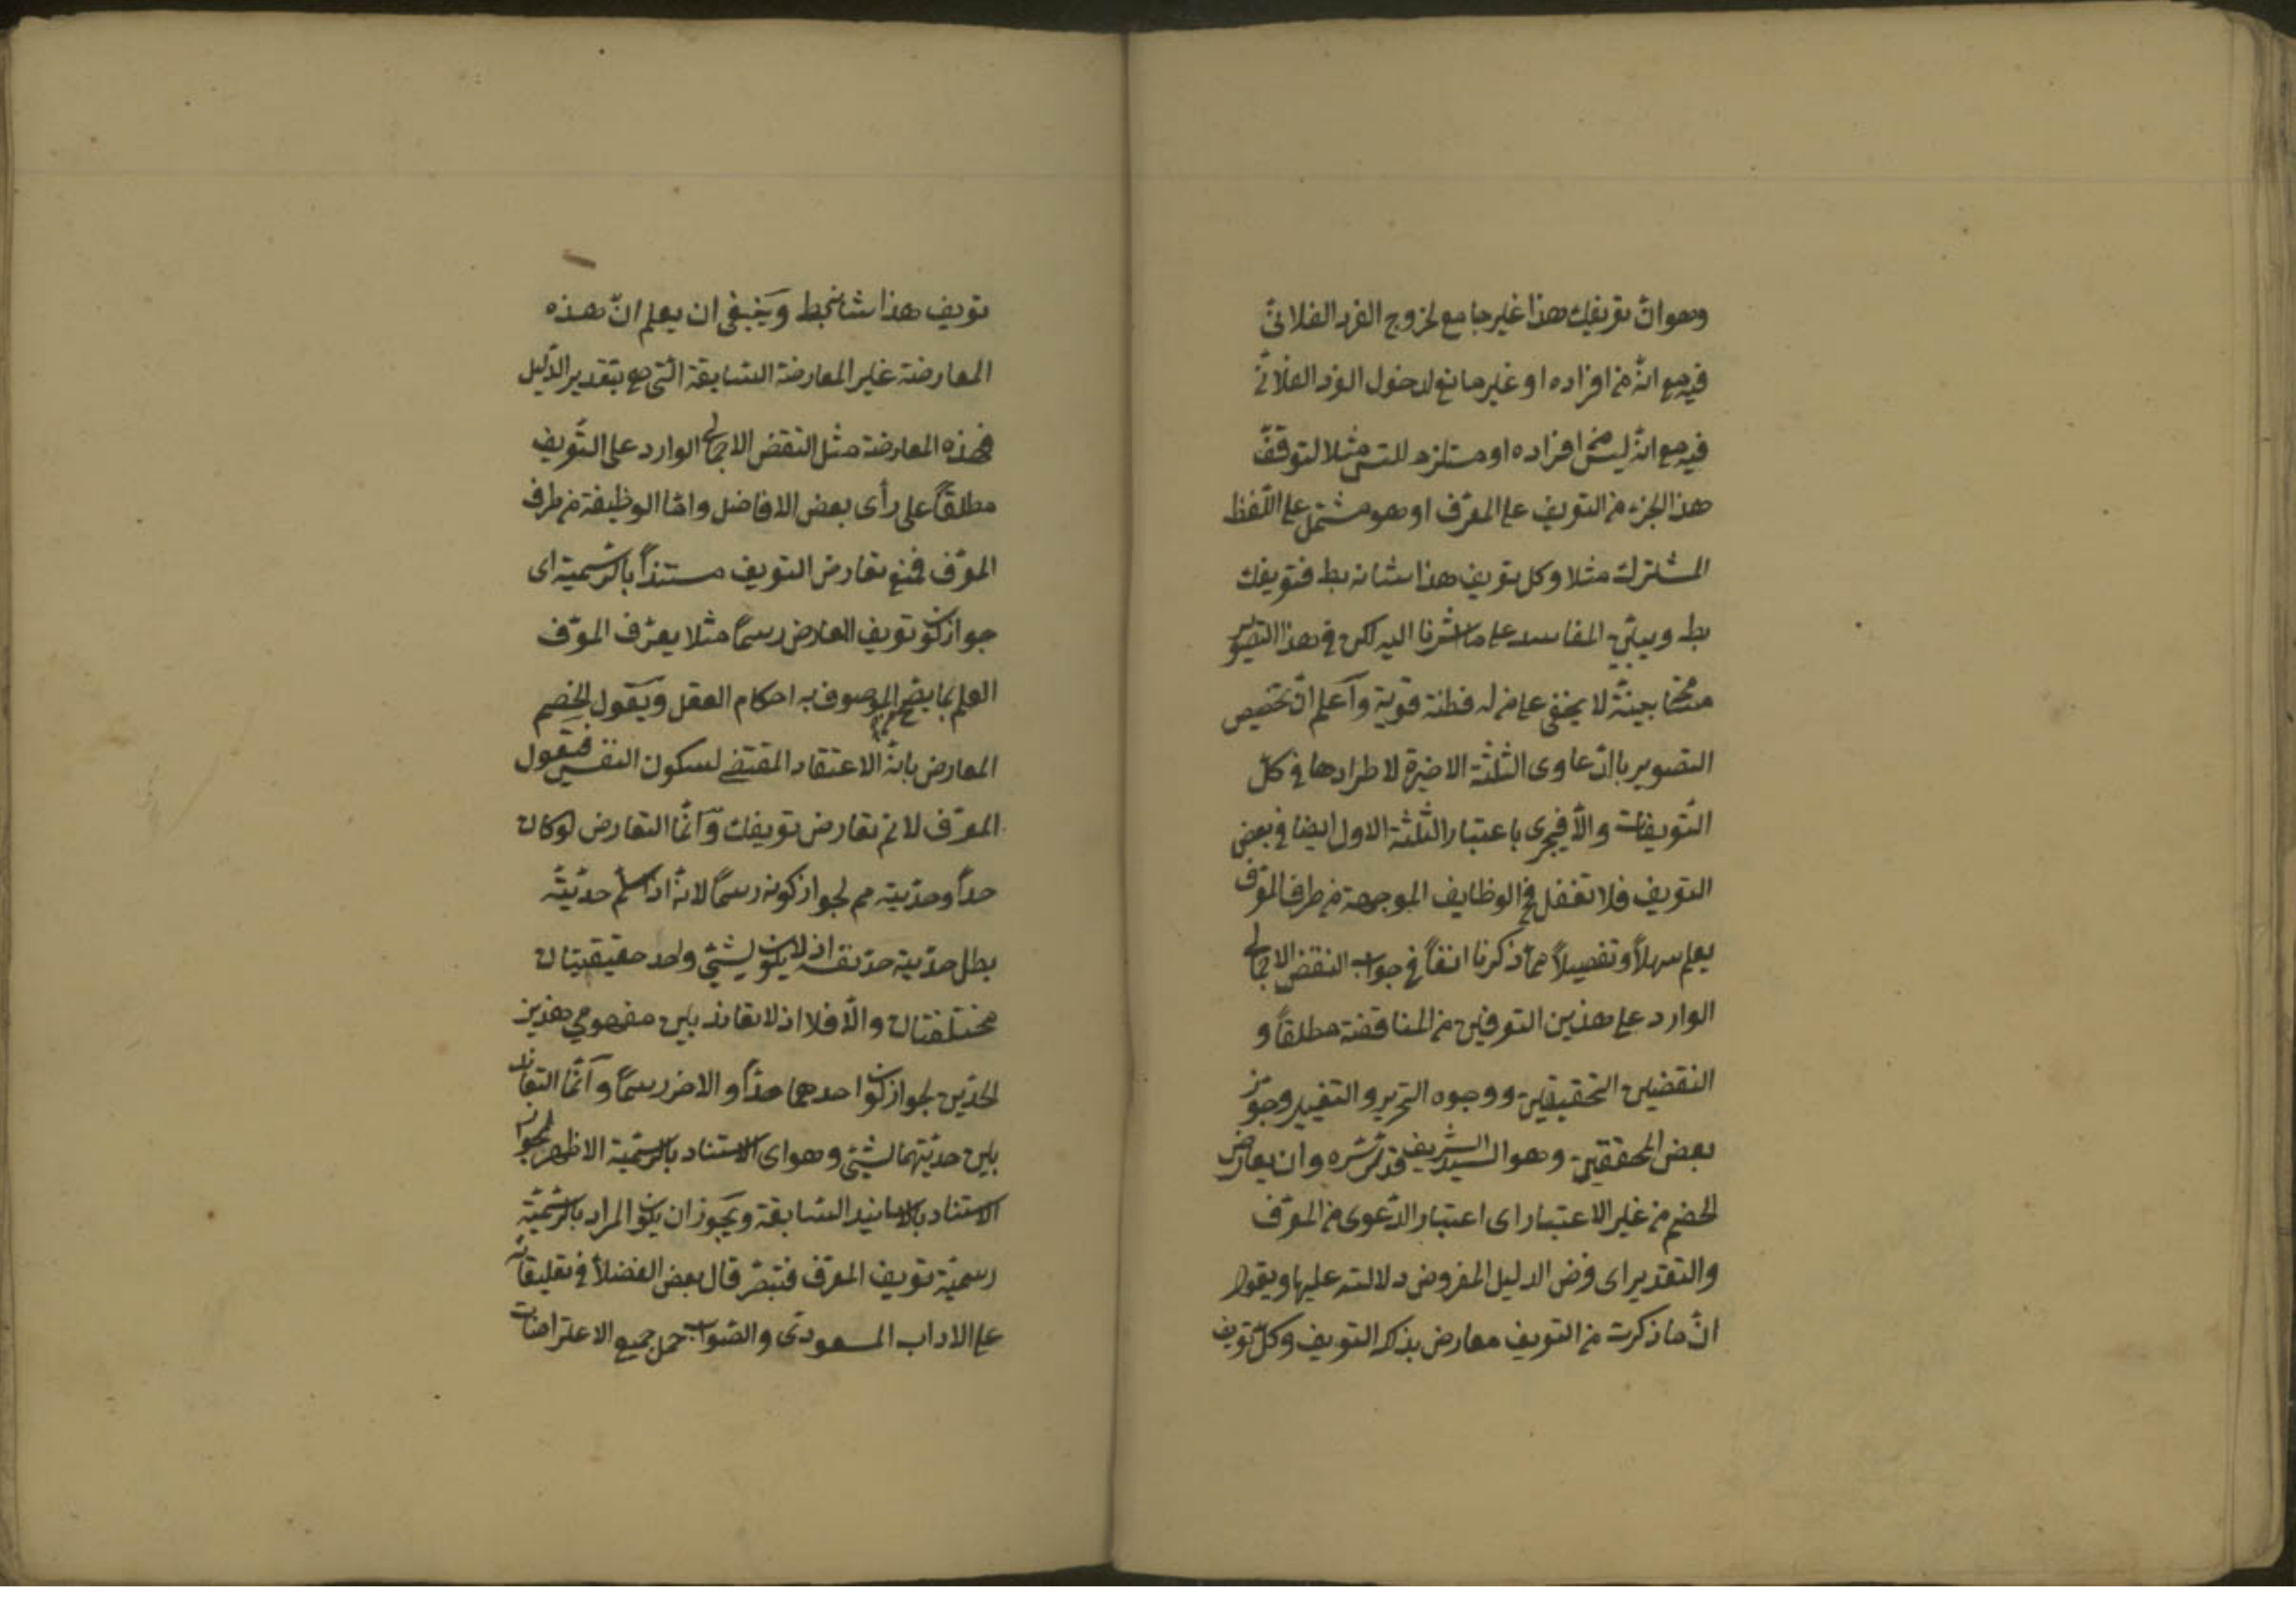 وهو ان تعريفك هذا غير جامع لخروج الفرد الفلانى
فيه مع انه من افراده او غير مانع لدخول الفرد الفلانى
فيه مع انه ليس من افراده او مستلزم للتس مثلا لتوقف
هذا الجزء من التعريف على المعرف او هو مشتمل على اللفظ
المشترك مثلا وكل تعريف هذا شانه بط فتعريفك
بط ويبين المفاسد على ما اشرنا اليه لكن فى هذا التصوير
بينة لا يخفى على من له فطنة قوية وآعلم ان تخصيص
التصوير بالدعاوى الثلثة الاخيرة لاطرادها فى كل
التعريفات والا فيجرى باعتبار الثلثة الاول ايضا فى بعض
التعريف فلا تغفل ثم الوظايف الموجهة من طرف المعرف
يعلم سهلاً وتفصيلاً مما ذكرنا انفاً فى جواب النقض الاجمالى
الوارد على هذين التعرفين من المناقضة مطلقاً و
النقضين التحقيقين ووجوه التحرير والتغيير وجوز
بعض المحققين وهو السيد الشريف قدس سره وان يعارض
الخصم من غير الاعتبار اى اعتبار الدعوى من المعرف
والتقدير اى فرض الدليل المفروض دلالته عليها ويقول
ان ما ذكرت من التعريف معارض بذلك التعريف وكل تعريف
تعريف هذا شانه بط وينبغى ان يعلم ان هذه
المعارضة غير المعارضة السابقة التى هى بتقدير الدليل
فهذه المعارضة مثل النقض الاجمالى الوارد على التعريف
مطلقاً على رأى بعض الافاضل واما الوظيفة من طرف
المعرف فمنع تعارض التعريف مستنداً بالرسمية اى
جواز كون تعريف المعارض رسماً مثلا يعرف المعرف
العلم بما يصح الموصوف به احكام العقل ويقول الخصم
المعارض بانه الاعتقاد المقتضى لسكون النفس فتقول
المعرف لا نم تعارض تعريفك وآنما التعارض لو كان
حداً وحديته مم لجواز كونه رسماً لانه اذا سلم حديته
بطل حدية حد نفسه اذ لا يكون لشئ واحد حقيقتان
مختلفتان والا فلا اذ لا تعاند بين مفهومى هذين
الحدين لجواز كون احدهما حداً والاخر رسماً وآنما التعاند
بين حديتهما لشئ وهو اى الاستناد بالرسمية الاظهر لجواز
الاستناد بالاسانيد السابقة ويجوز ان يكون المراد بالرسمية
رسمية تعريف المعرف فتبصر قال بعض الفضلأ فى تعليقاته
على الاداب المسعودى والصواب حمل جميع الاعتراضات